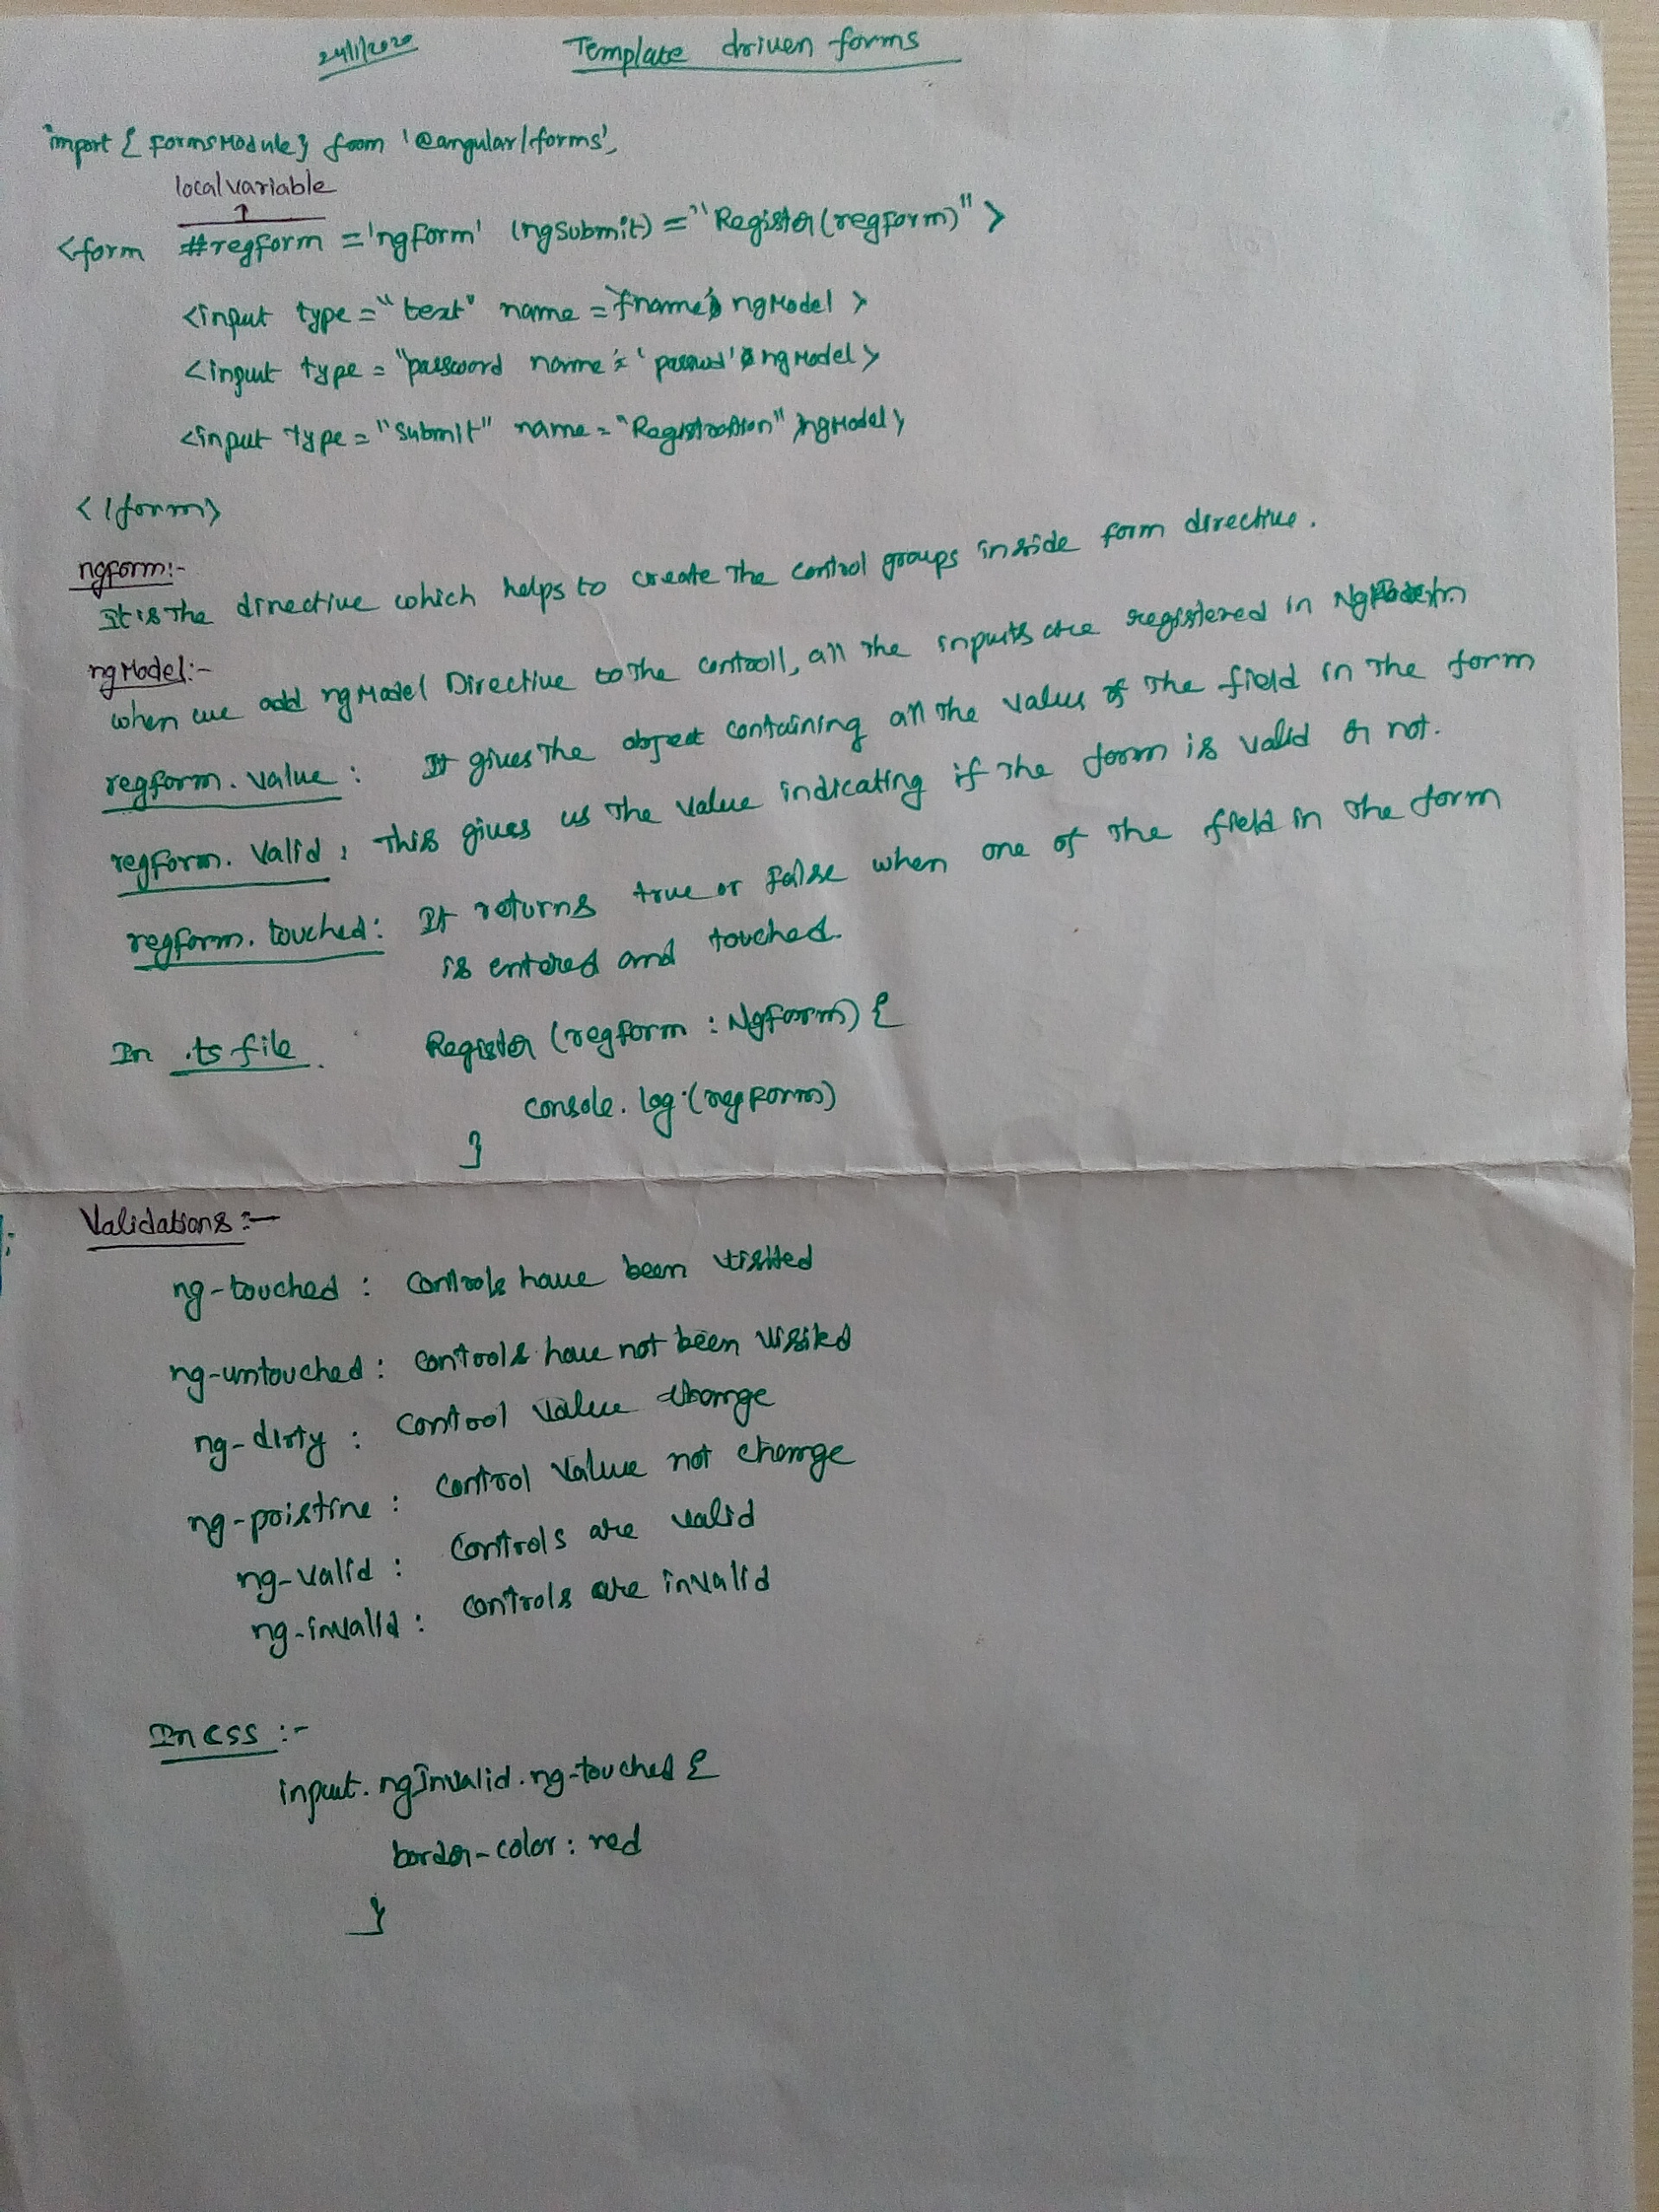 24/1/2020 Template driven forms
import { FormsModule} from '@angular/forms',
local variable
<form #regForm ='ngForm' (ngSubmit) = "Register(regForm)" >
<input type = "text" name = 'fname' ngModel >
<input type = "password name = ' ngModel>
<input type = "submit" name = "Registration" ngModel>
</form>
ngForm:-
It is The directive which helps to create The control groups inside form directive.
ngModel:-
when we add ngModel Directive to The controll, all The inputs are registered in NgForm
regForm. value : It gives The object containing all The values of The field in The form
regForm. Valid : This gives us The value indicating if The form is valid or not.
regForm. touched: It returns true or False when one of The field in The form
is entered and touched.
In .ts file. Register (regForm : NgForm) {
console. log (regForm)
}
Validations :-
ng-touched : controls have been visited
ng-untouched : controls have not been visited
ng-dirty : control value change
ng-pristine : control value not change
ng-valid : controls are valid
ng-invalid : controls are invalid
In CSS :-
input. ngInvalid . ng-touched {
border-color : red
}